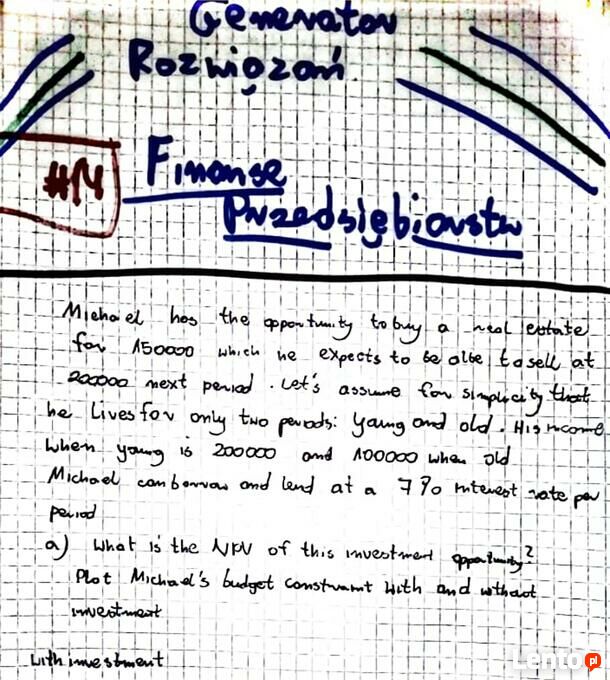 Generator
Rozwiązań
#14
Finanse
Przedsiębiorstw
Michael has the opportunity to buy a real estate
for 150000 which he expects to be able to sell at
200000 next period. Let's assume for simplicity that
he lives for only two periods: young and old. His income
when young is 200000 and 100000 when old
Michael can borrow and lend at a 7% interest rate per
period
a) What is the NPV of this investment opportunity?
Plot Michael's budget constraint with and without
investment
With investment
Lento pl